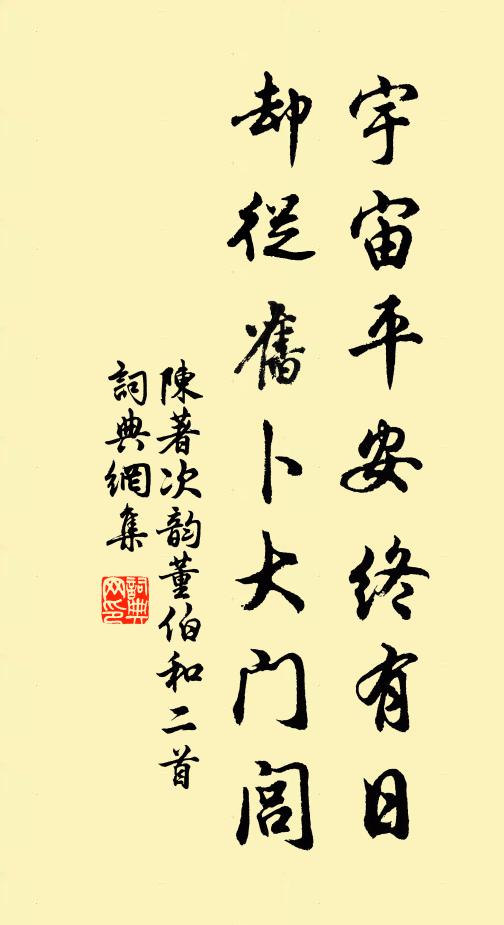 宇宙平安終有日
却從舊卜大門閭
陳著次韵董伯和二首
詞典網集
詞典網印